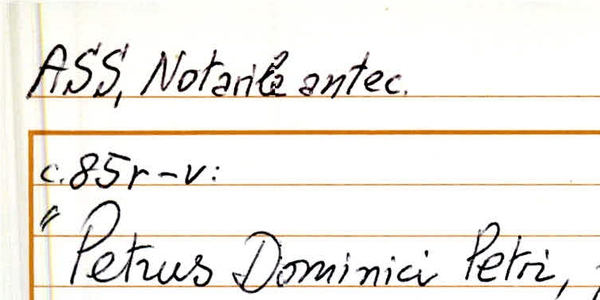 ASS, Notarile antec.
c. 85r-v:
" Petrus Dominici Petri,